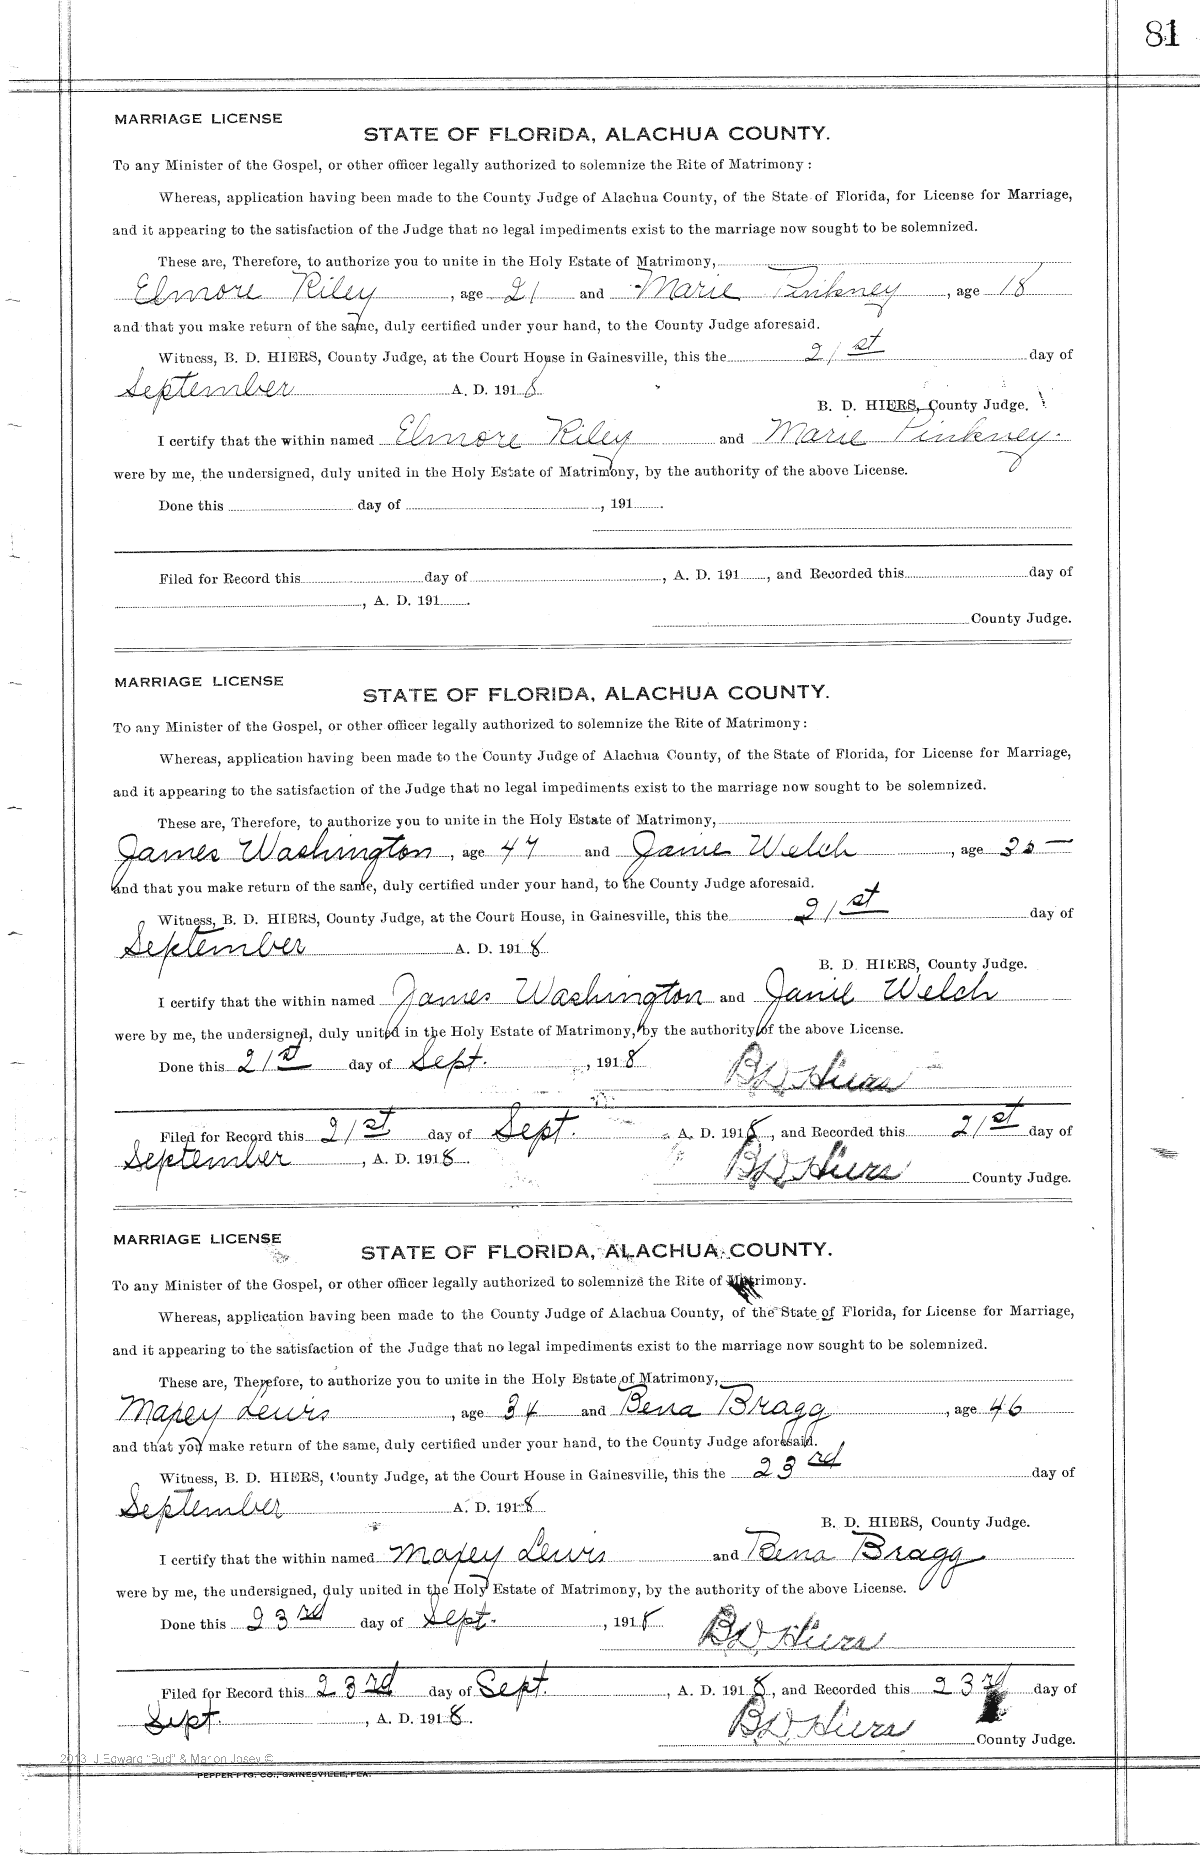 81
MARRIAGE LICENSE
STATE OF FLORIDA, ALACHUA COUNTY.
To any Minister of the Gospel, or other officer legally authorized to solemnize the Rite of Matrimony :
Whereas, application having been made to the County Judge of Alachua County, of the State of Florida, for License for Marriage,
and it appearing to the satisfaction of the Judge that no legal impediments exist to the marriage now sought to be solemnized.
These are, Therefore, to authorize you to unite in the Holy Estate of Matrimony,
Elmore Riley, age 21 and Marie Pinkney, age 18
and that you make return of the same, duly certified under your hand, to the County Judge aforesaid.
Witness, B. D. HIERS, County Judge, at the Court House in Gainesville, this the 21st day of
September A. D. 1918
B. D. HIERS, County Judge.
I certify that the within named Elmore Riley and Marie Pinkney.
were by me, the undersigned, duly united in the Holy Estate of Matrimony, by the authority of the above License.
Done this day of , 191 .
Filed for Record this day of , A. D. 191 , and Recorded this day of
, A. D. 191 .
County Judge.
MARRIAGE LICENSE
STATE OF FLORIDA, ALACHUA COUNTY.
To any Minister of the Gospel, or other officer legally authorized to solemnize the Rite of Matrimony :
Whereas, application having been made to the County Judge of Alachua County, of the State of Florida, for License for Marriage,
and it appearing to the satisfaction of the Judge that no legal impediments exist to the marriage now sought to be solemnized.
These are, Therefore, to authorize you to unite in the Holy Estate of Matrimony,
James Washington, age 47 and Janie Welch, age
and that you make return of the same, duly certified under your hand, to the County Judge aforesaid.
Witness, B. D. HIERS, County Judge, at the Court House, in Gainesville, this the 21st day of
September A. D. 1918
B. D. HIERS, County Judge.
I certify that the within named James Washington and Janie Welch
were by me, the undersigned, duly united in the Holy Estate of Matrimony, by the authority of the above License.
Done this 21st day of Sept. , 1918
BD Hiers
Filed for Record this 21st day of Sept. A. D. 1918, and Recorded this 21st day of
September, A. D. 1918.
BD Hiers County Judge.
MARRIAGE LICENSE
STATE OF FLORIDA, ALACHUA COUNTY.
To any Minister of the Gospel, or other officer legally authorized to solemnize the Rite of Matrimony.
Whereas, application having been made to the County Judge of Alachua County, of the State of Florida, for License for Marriage,
and it appearing to the satisfaction of the Judge that no legal impediments exist to the marriage now sought to be solemnized.
These are, Therefore, to authorize you to unite in the Holy Estate of Matrimony,
Maxey Lewis, age 34 and Bena Bragg, age 46
and that you make return of the same, duly certified under your hand, to the County Judge aforesaid.
Witness, B. D. HIERS, County Judge, at the Court House in Gainesville, this the 23rd day of
September A. D. 1918
B. D. HIERS, County Judge.
I certify that the within named Maxey Lewis and Bena Bragg
were by me, the undersigned, duly united in the Holy Estate of Matrimony, by the authority of the above License.
Done this 23rd day of Sept. , 1918
BD Hiers
Filed for Record this 23rd day of Sept. , A. D. 1918, and Recorded this 23rd day of
Sept. , A. D. 1918.
BD Hiers County Judge.
2013 J Edward "Bud" & Marion Josey ©
PEPPER PTG. CO., GAINESVILLE, FLA.